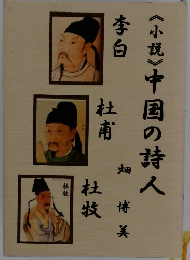 《小説》中国の詩人
畑 博美
李白
杜甫
杜牧
杜牧